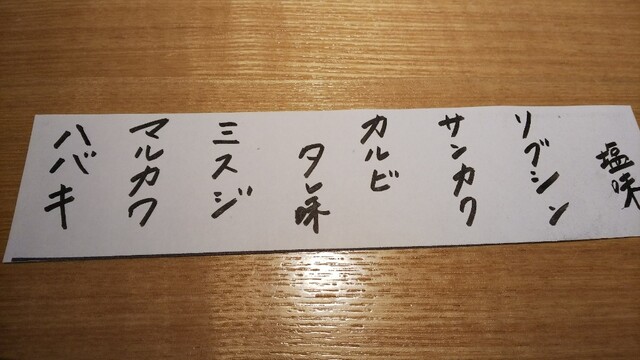 塩味
リブシン
サンカク
カルビ
タレ味
ミスジ
マルカワ
ハバキ